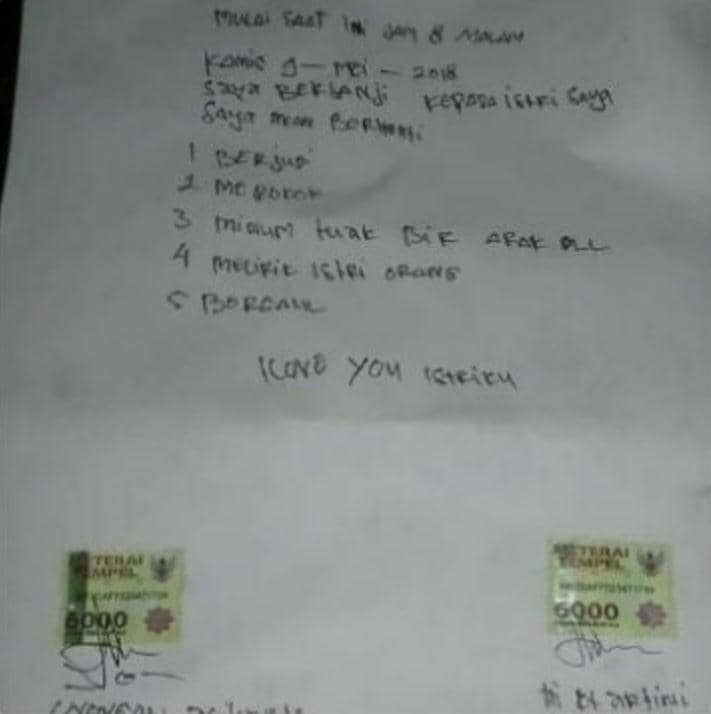 MULAI SAAT INI JAM 8 MALAM
KAMIS 9 - MEI - 2018
SAYA BERJANJI KEPADA ISTRI SAYA
SAYA AKAN BERHENTI
1 BERJUDI
2 MEROKOK
3 MINUM tuak BIR ARAK DLL
4 MELIRIK ISTRI ORANG
5 BORCAUL
I LOVE YOU ISTRIKU
METERAI TEMPEL
6000
METERAI TEMPEL
6000